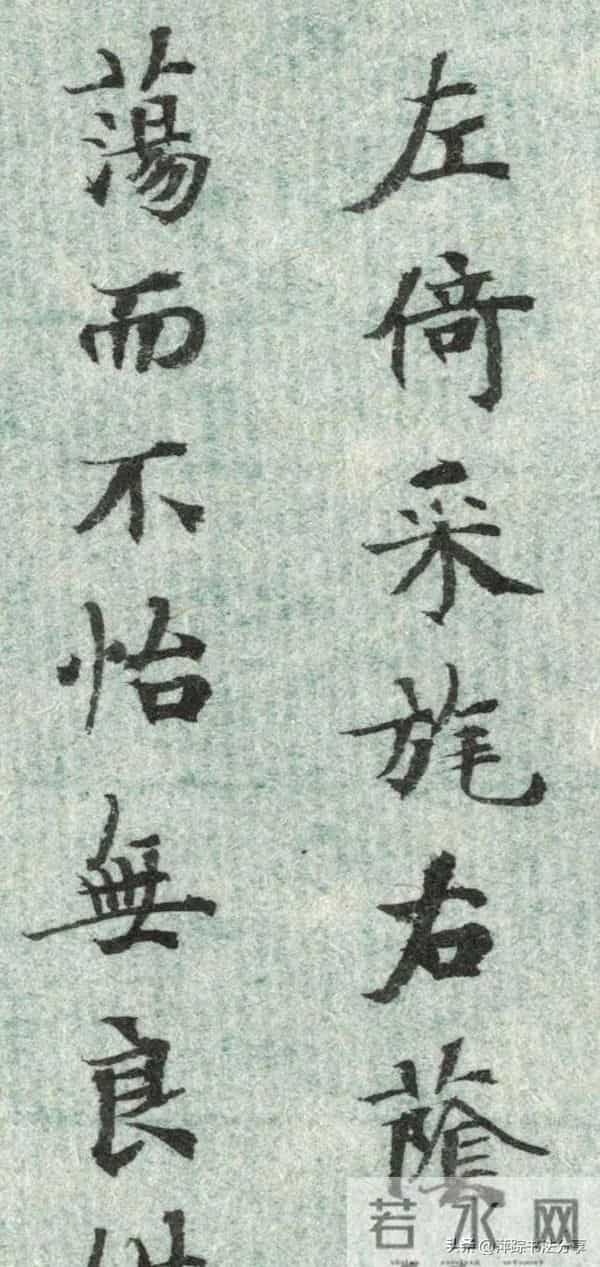 左倚采旄右蔭
蕩而不怡無良
若水网
头条@萍踪书法分享